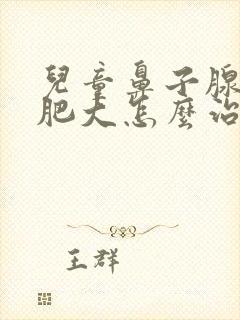 兒童鼻子腺
肥大怎麼治
王群